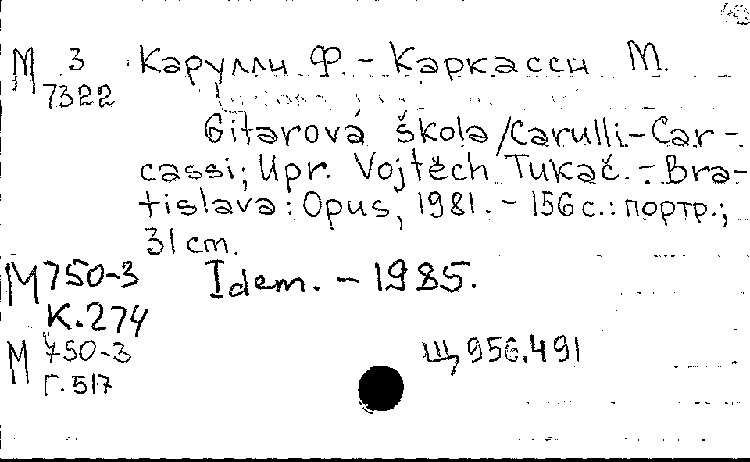 М 3 Карулли Ф. – Каркасси М.
7322
Gitarová škola/Carulli-Car-
cassi; Upr. Vojtěch Tukač. – Bra-
tislava: Opus, 1981. – 156 с.: портр.;
31 cm.
М 750-3 Idem. – 1985.
К.274
М 750-3 Щ 956.491
Г.517